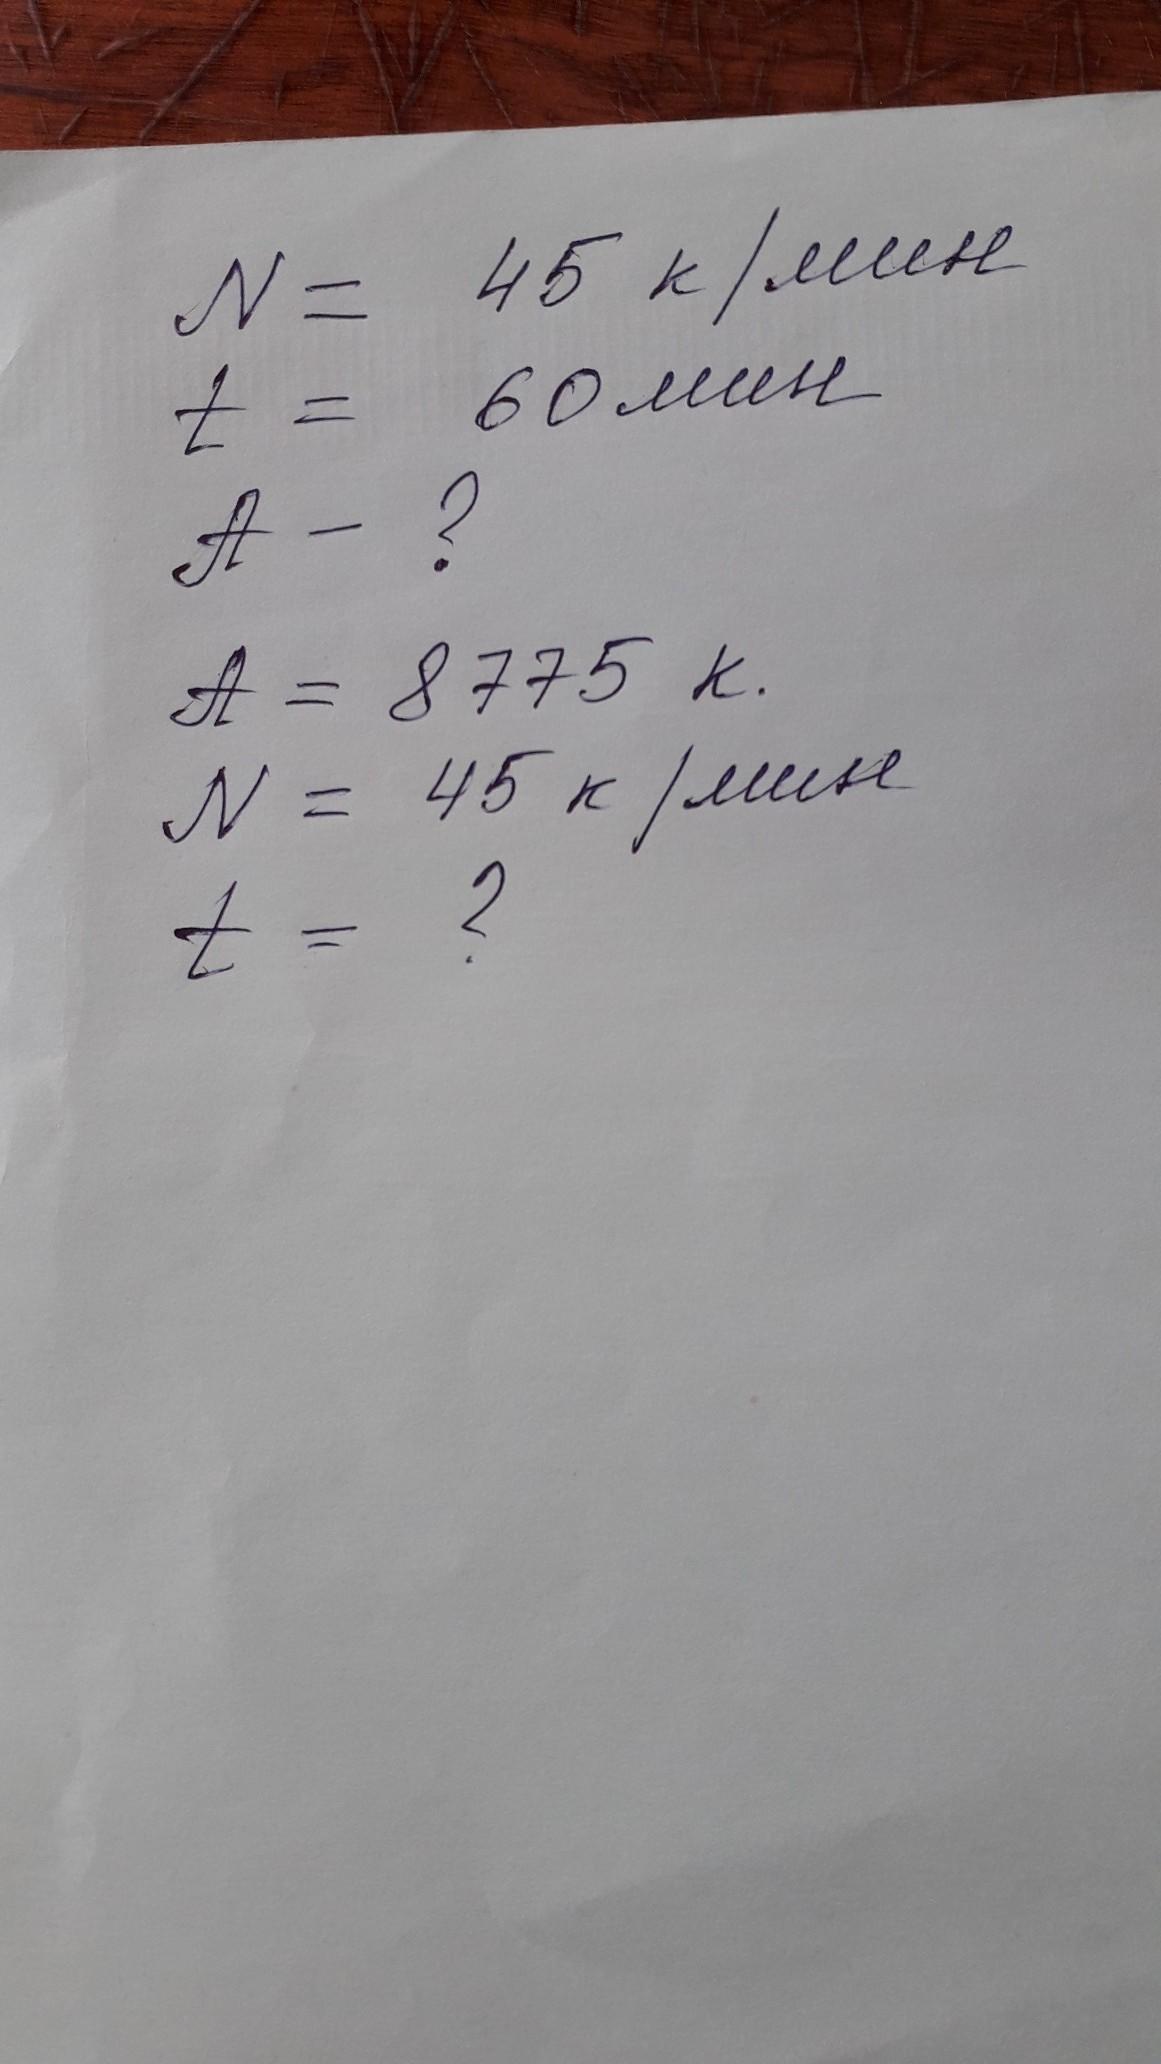 N = 45 к/мин
t = 60 мин
A - ?
A = 8775 к.
N = 45 к/мин
t = ?